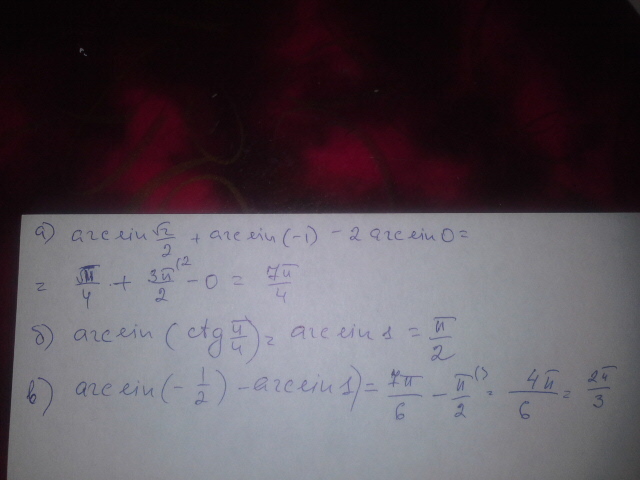 а) arcsin √2/2 + arcsin(-1) - 2 arcsin 0 =
= π/4 + 3π/2 (2 - 0 = 7π/4
б) arcsin (ctg π/4) = arcsin 1 = π/2
в) arcsin(- 1/2) - arcsin 1) = 7π/6 - π/2 (3 = 4π/6 = 2π/3